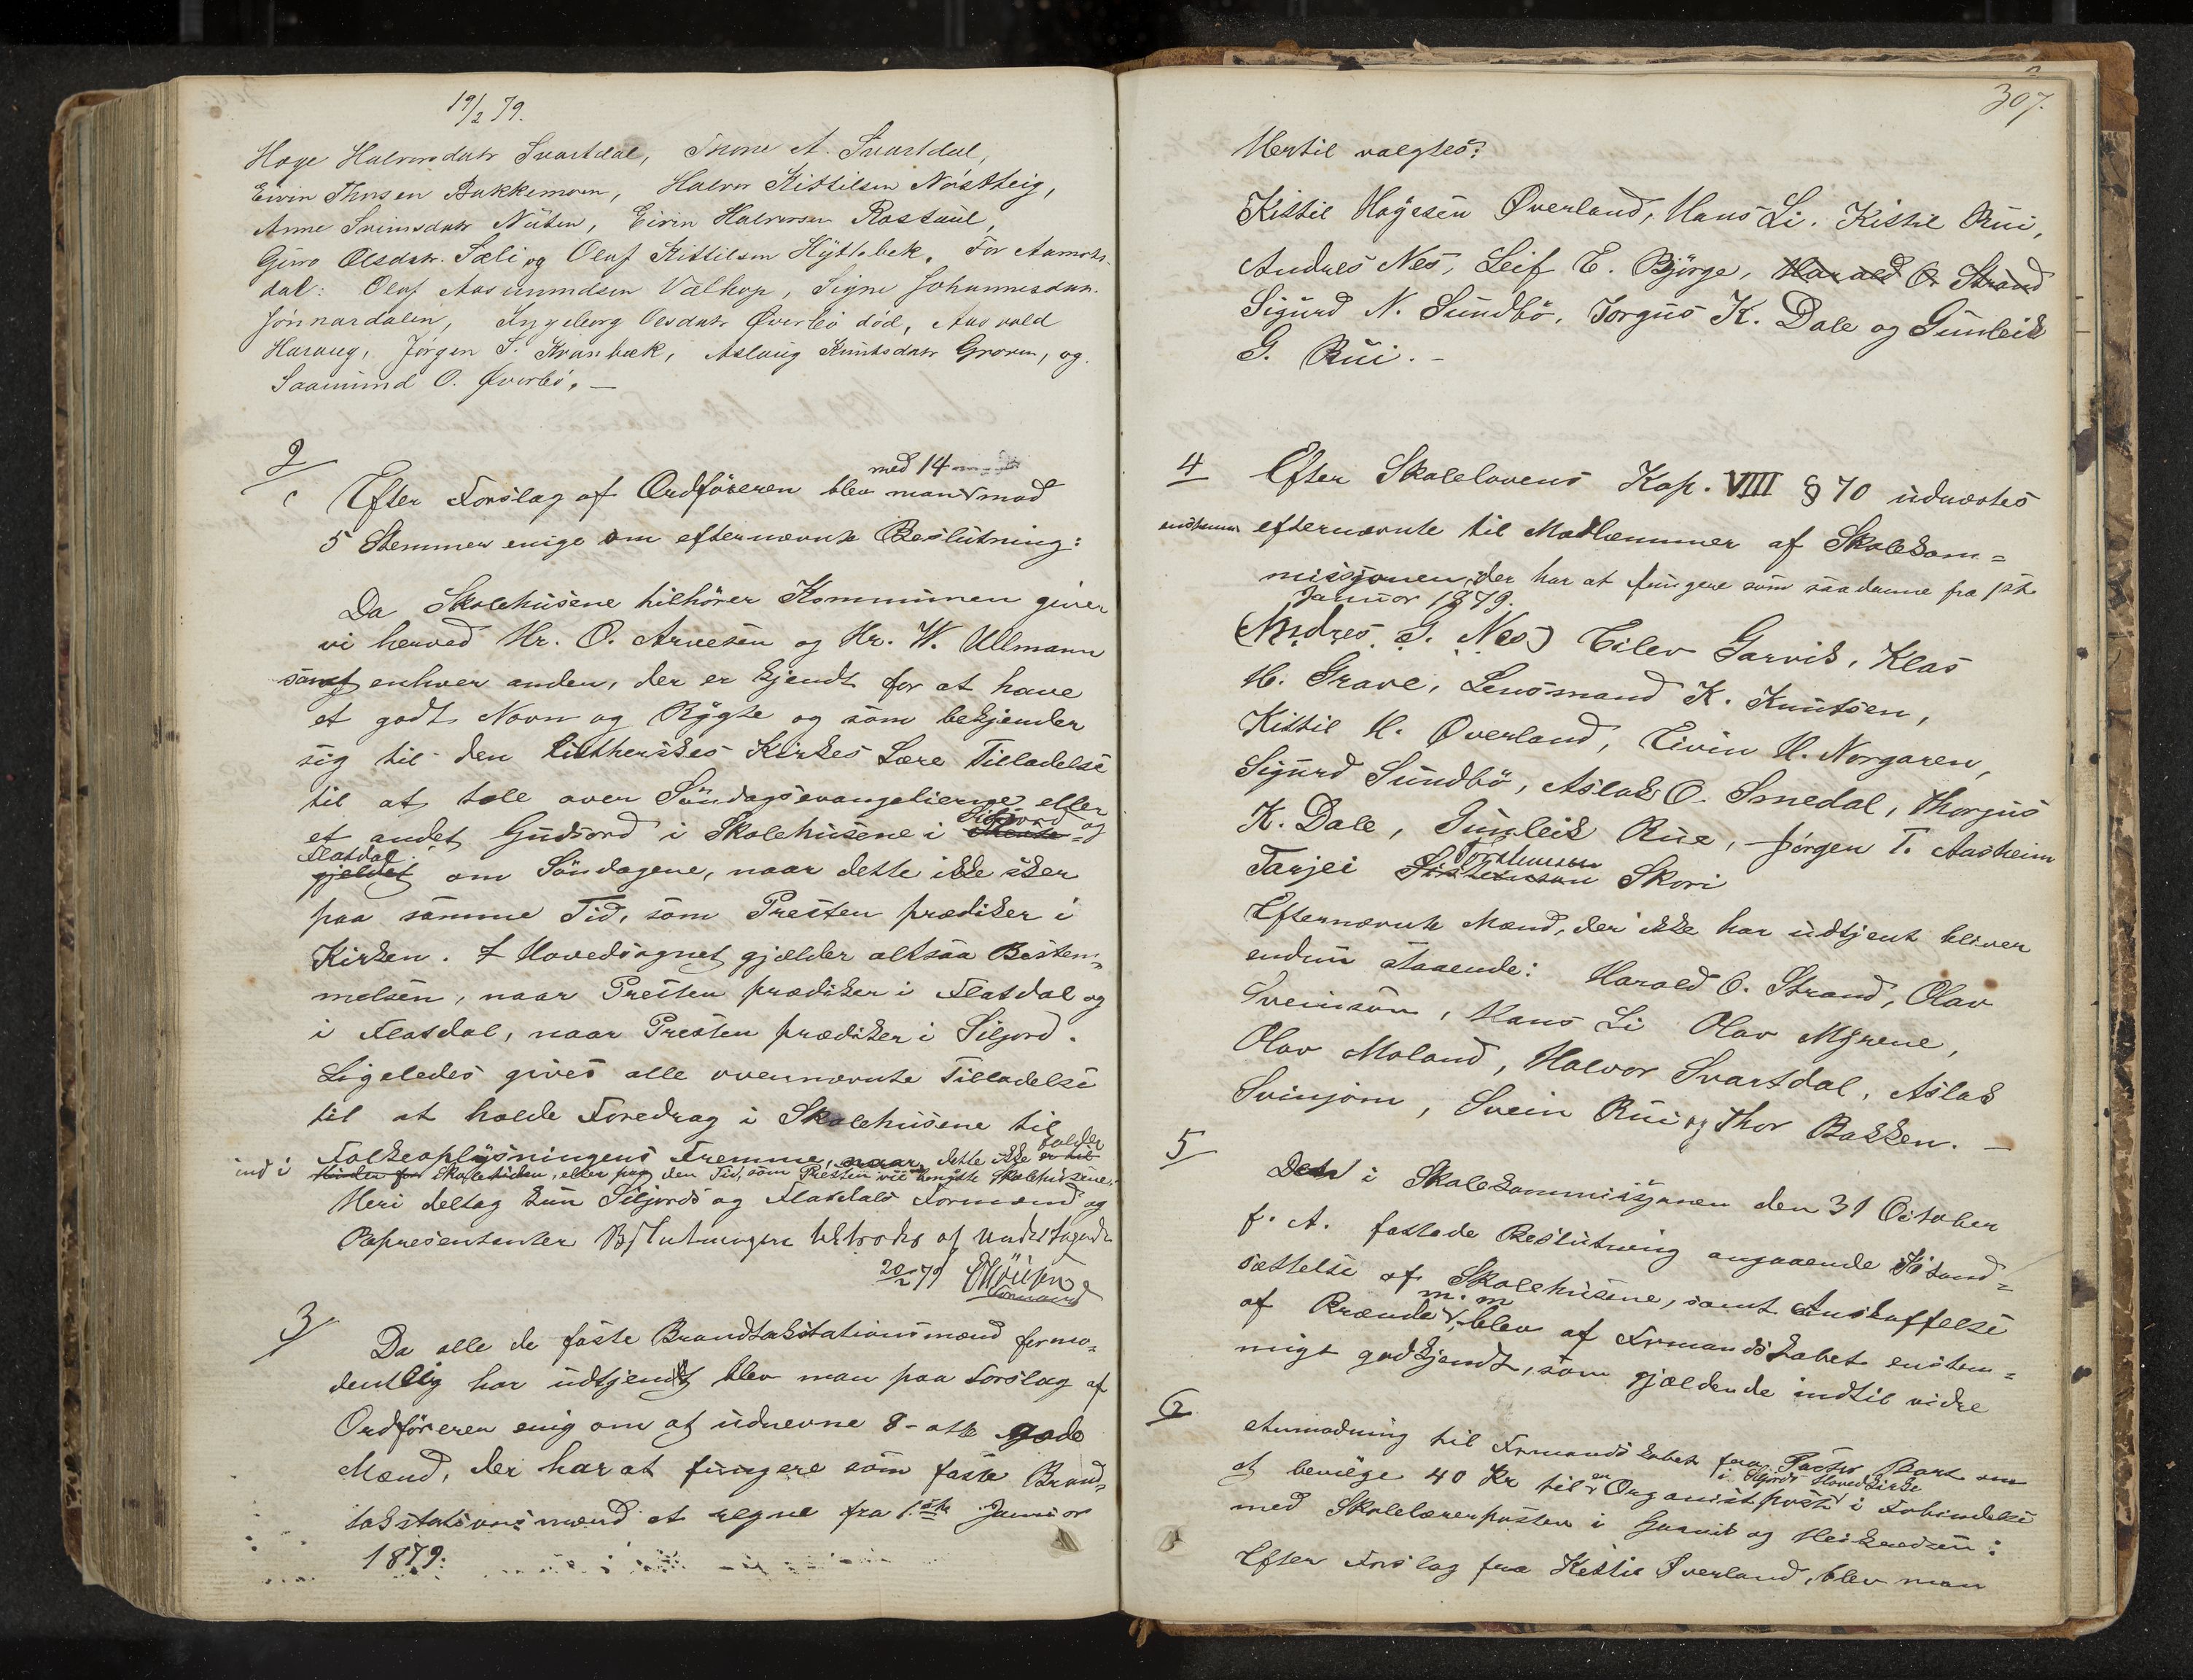 19/2 79.
Hæge Halvorsdatr Svartdal, Thone A. Svartdal,
Eivin Thorsen Bakkemoen, Halvor Kittilsen Nøistteig,
Anne Sveinsdatr Nuten, Eivin Halvorsen Rostaul,
Guro Olsdatr. Sæli og Oluf Kittilsen Kyttebek. For Aamots-
dal: Oluf Aasmundsen Valhop, Signe Johannesdatr.
Jönnardalen, Ingeborg Olsdatr Øverbö död, Aasvald
Haraug, Jørgen S. Kvanbæk, Aslaug Knutsdatr Groven, og
Saamund O. Øverbö. —
2/
Efter Forslag af Ordföreren blev man med 14 mod
5 Stemmer enige om efternævnte Beslutning:
Da Skolehusene tilhörer Kommunen giver
vi herved Hr. O. Arvesen og Hr. V. Ullmann
samt enhver anden, der er kjendt for at have
et godt Navn og Rygte og som bekjender
sig til den lutherskes Kirkes Lære Tilladelse
til at tale over Söndagsevangelierne eller
et andet Gudsord i Skolehusene i Siljord og
Flatdal
gjeldet om Söndagene, naar dette ikke sker
paa samme Tid, som Presten prædiker i
Kirken. I Hovedsognet gjælder altsaa Bestem=
melsen, naar Presten prædiker i Flatdal og
i Flatdal, naar Presten prædiker i Siljord.
Ligeledes gives alle ovennævnte Tilladelse
til at holde Foredrag i Skolehusene til
Folkeoplysningens Fremme, naar dette ikke falder er til
ind i Hinder for Skoletiden, eller paa den Tid, som Presten vil benytte Skolehusene.
Heri deltog kun Siljords og Flatdals Formænd og
Repræsentanter Beslutningen tiltrædes af undertegnede
20/2 79
Formand
3/
Da alle de faste Brandtakstationsmænd formo=
dentlig har udtjent blev man paa Forslag af
Ordföreren enig om at udnevne 8 - otte gode
Mænd, der har at fungere som faste Brand=
takstationsmænd at regne fra 1ste Januar
1879:
307.
Hertil valgtes:
Kittil Høgesen Øverland, Hans Li, Kittil Rui,
Andres Nes, Leif E. Björge, Harald O. Strand
Sigurd N. Sundbö, Torgus K. Dale og Gunleik
G. Rui. -
4
Efter Skolelovens Kap. VIII § 70 udnævntes
enstemm efternævnte til Medlemmer af Skolekom=
missjonen, der har at fungere som saadanne fra 1ste
Januar 1879.
(Andres G. Nes) Eilev Garvik, Klas
H. Grave, Lensmand K. Knutsen,
Kittil H. Øverland, Eivin H. Norgaren,
Sigurd Sundbö, Aslak O. Smedal, Thorgus
K. Dale, Gunleik Rue, Jörgen T. Aasheim
Tarjei Torsteinson Skori
Efternævnte Mænd, der ikke har udtjent bliver
endnu staaende: Harald O. Strand, Olav
Sveinson, Hans Li Olav Myrene,
Olav Moland, Halvor Svartdal, Aslak
Svinjom, Svein Rui og Thor Bakken. —
5
Den i Skolekommissjonen den 31 October
f. A. fattede Beslutning angaaende Istand=
sættelse af Skolehusene, samt Anskaffelse
af Brænde m. m blev af Formandskabet enstem=
migt godkjendt, som gjældende indtil vidre
6
Anmodning til Formandskabet fra Pastor Bart om
at bevilge 40 Kr til en Organistpost i Siljords Hovedkirke i Forbindelse
med Skolelærerposten i Garvik og Heikendsu:
Efter Forslag fra Kittil Øverland, blev man